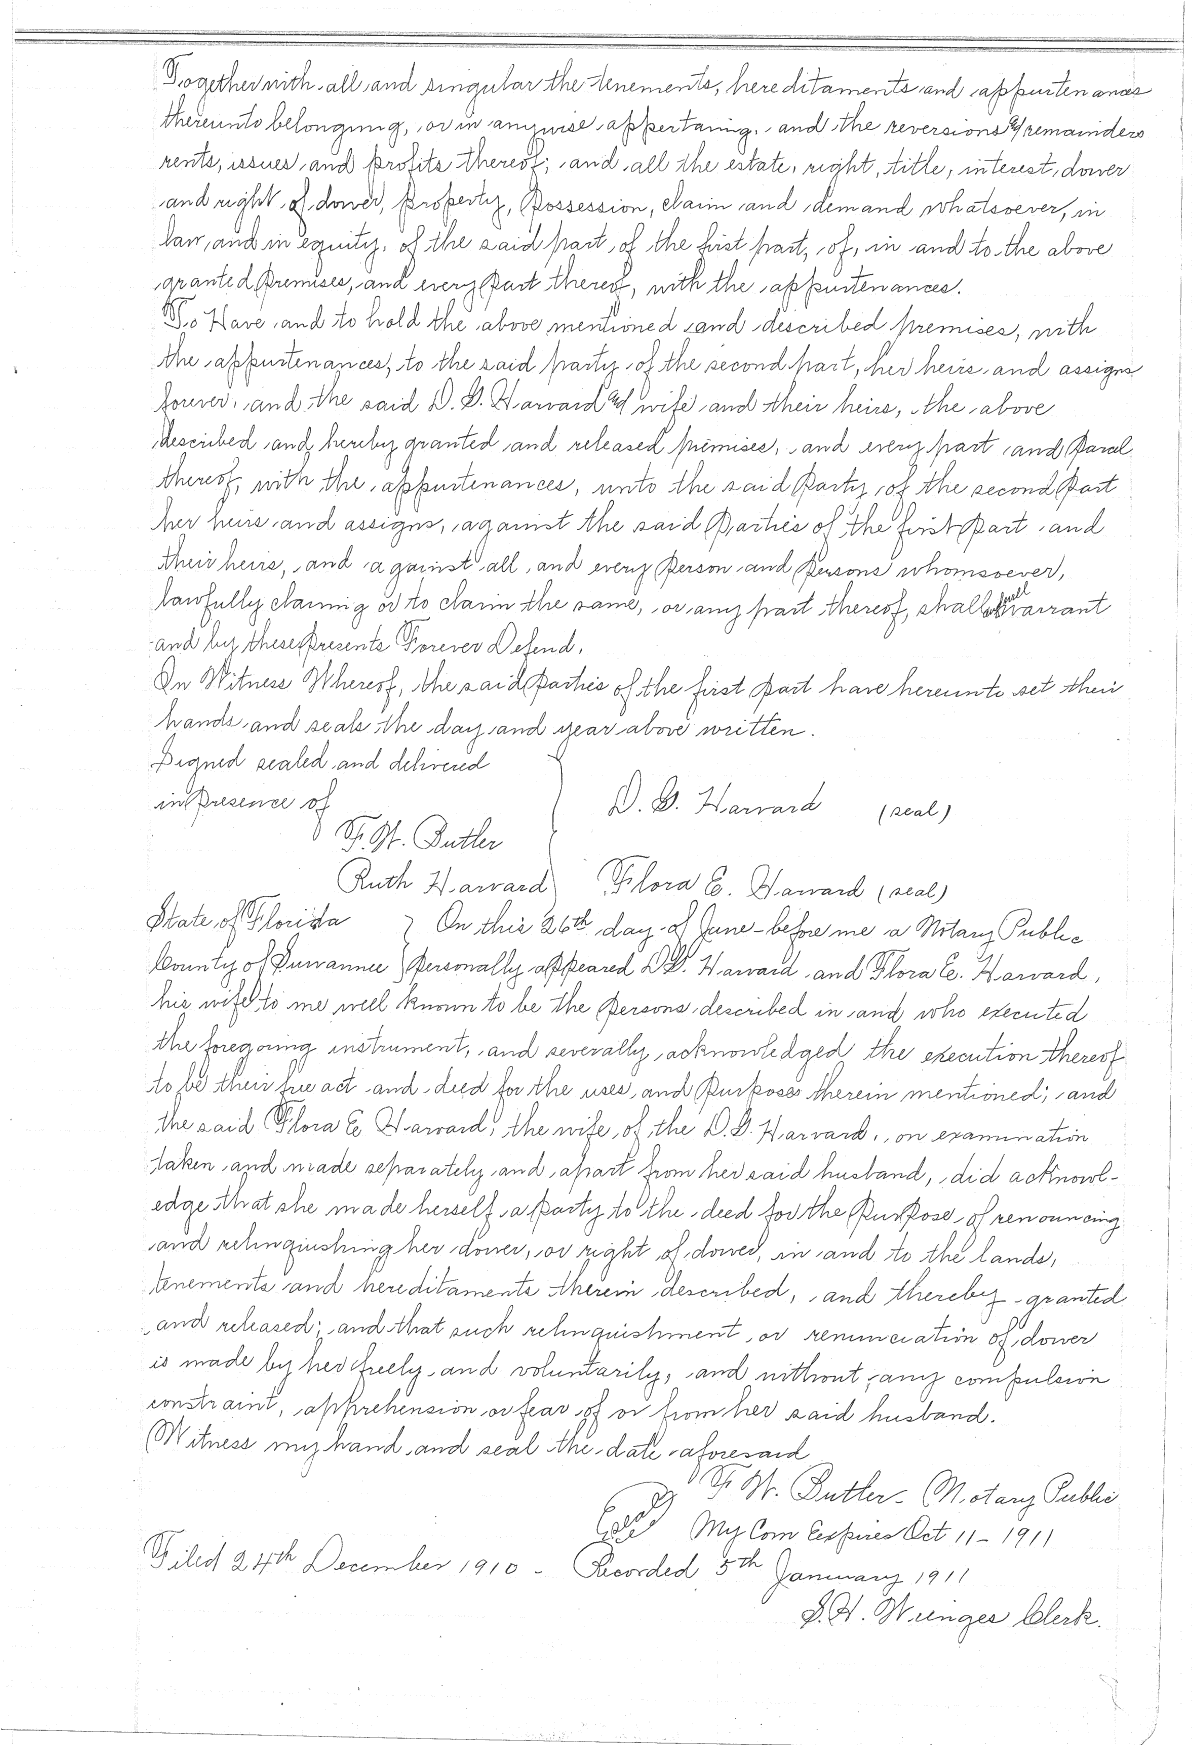 Together with all and singular the tenements, hereditaments and appurtenances
thereunto belonging, or in anywise appertaning, and the reversions and remainders
rents, issues and profits thereof; and all the estate, right, title, interest, dower
and right of dower, property, Possession, claim and demand whatsoever, in
law, and in equity, of the said part, of the first part, of, in and to the above
granted Premises, and every Part thereof, with the appurtenances.
To Have and to hold the above mentioned and described premises, with
the appurtenances, to the said party of the second part, her heirs and assigns
forever, and the said D. G. Harvard and wife and their heirs, the above
described and hereby granted and released premises, and every part and Parcel
thereof, with the appurtenances, unto the said Party of the second Part
her heirs and assigns, against the said Parties of the first Part and
their heirs, and against all and every Person and Persons whomsoever,
lawfully claiming or to claim the same, or any part thereof, shall will warrant
and by these Presents Forever Defend.
In Witness Whereof, the said Parties of the first Part have hereunto set their
hands and seals the day and year above written.
Signed sealed and delivered
in Presence of
D. G. Harvard (seal)
F. W. Butler
Ruth Harvard Flora E. Harvard (seal)
State of Florida } On this 26th day of June - before me a Notary Public
County of Suwannee } Personally appeared D.G. Harvard and Flora E. Harvard,
his wife to me well known to be the Persons described in and who executed
the foregoing instrument, and severally acknowledged the execution thereof
to be their free act and deed for the uses and Purposes therein mentioned; and
the said Flora E Harvard, the wife of the D. G. Harvard, on examination
taken and made separately and apart from her said husband, did acknowl-
edge that she made herself a Party to the deed for the Purpose of renouncing
and relinqiushing her dower, or right of dower, in and to the lands,
tenements and hereditaments therein described, and thereby granted
and released; and that such relinquishment or renunciation of dower
is made by her freely and voluntarily, and without any compulsion
constraint, apprehension or fear of or from her said husband.
Witness my hand and seal the date aforesaid
F W. Butler - Notary Public
Seal My Com Eexpires Oct 11 - 1911
Filed 24th December 1910 - Recorded 5th January 1911
S. H. Clerk.